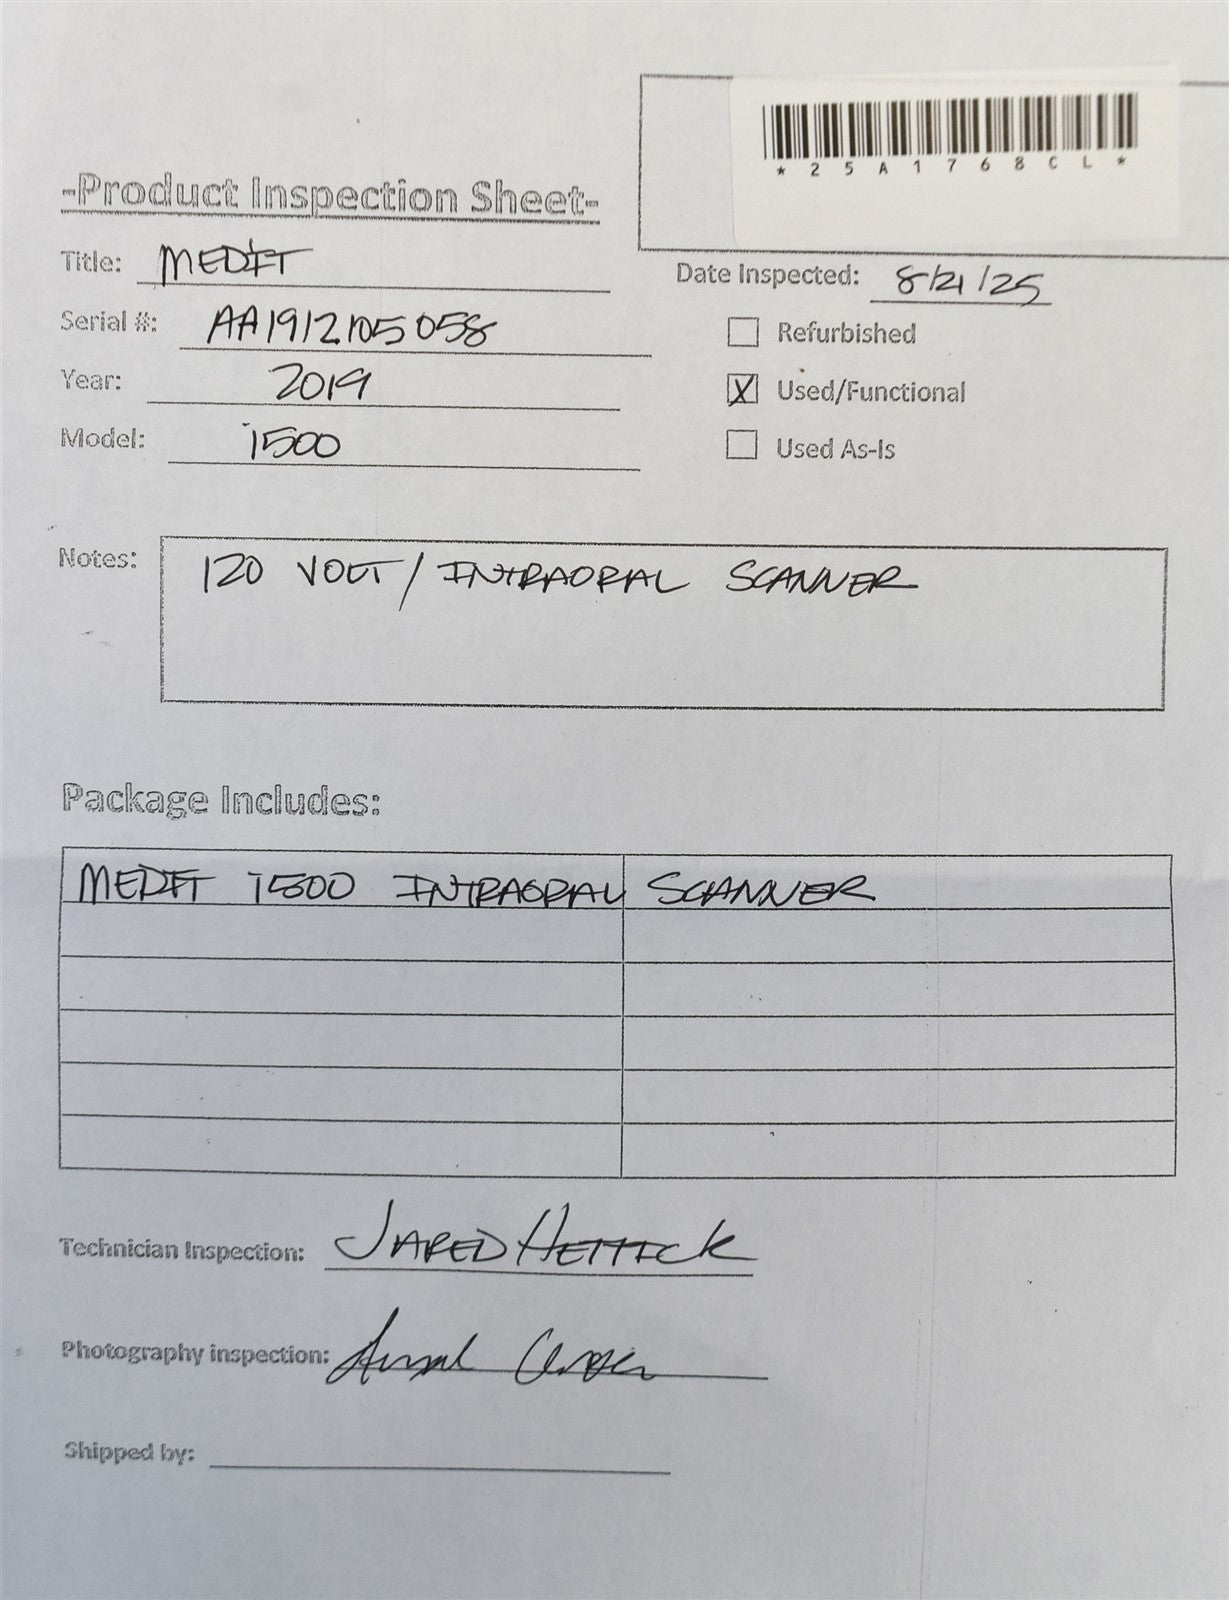 *25A1768CL*
-Product Inspection Sheet-
Title: MEDIT
Date Inspected: 8/21/25
Serial #: AA1912105058
Refurbished
Year: 2019
X Used/Functional
Model: i500
Used As-Is
Notes: 120 VOLT / INTRAORAL SCANNER
Package Includes:
MEDIT i500 INTRAORAL SCANNER
Technician Inspection: JARED HETTICK
Photography inspection:
Shipped by: